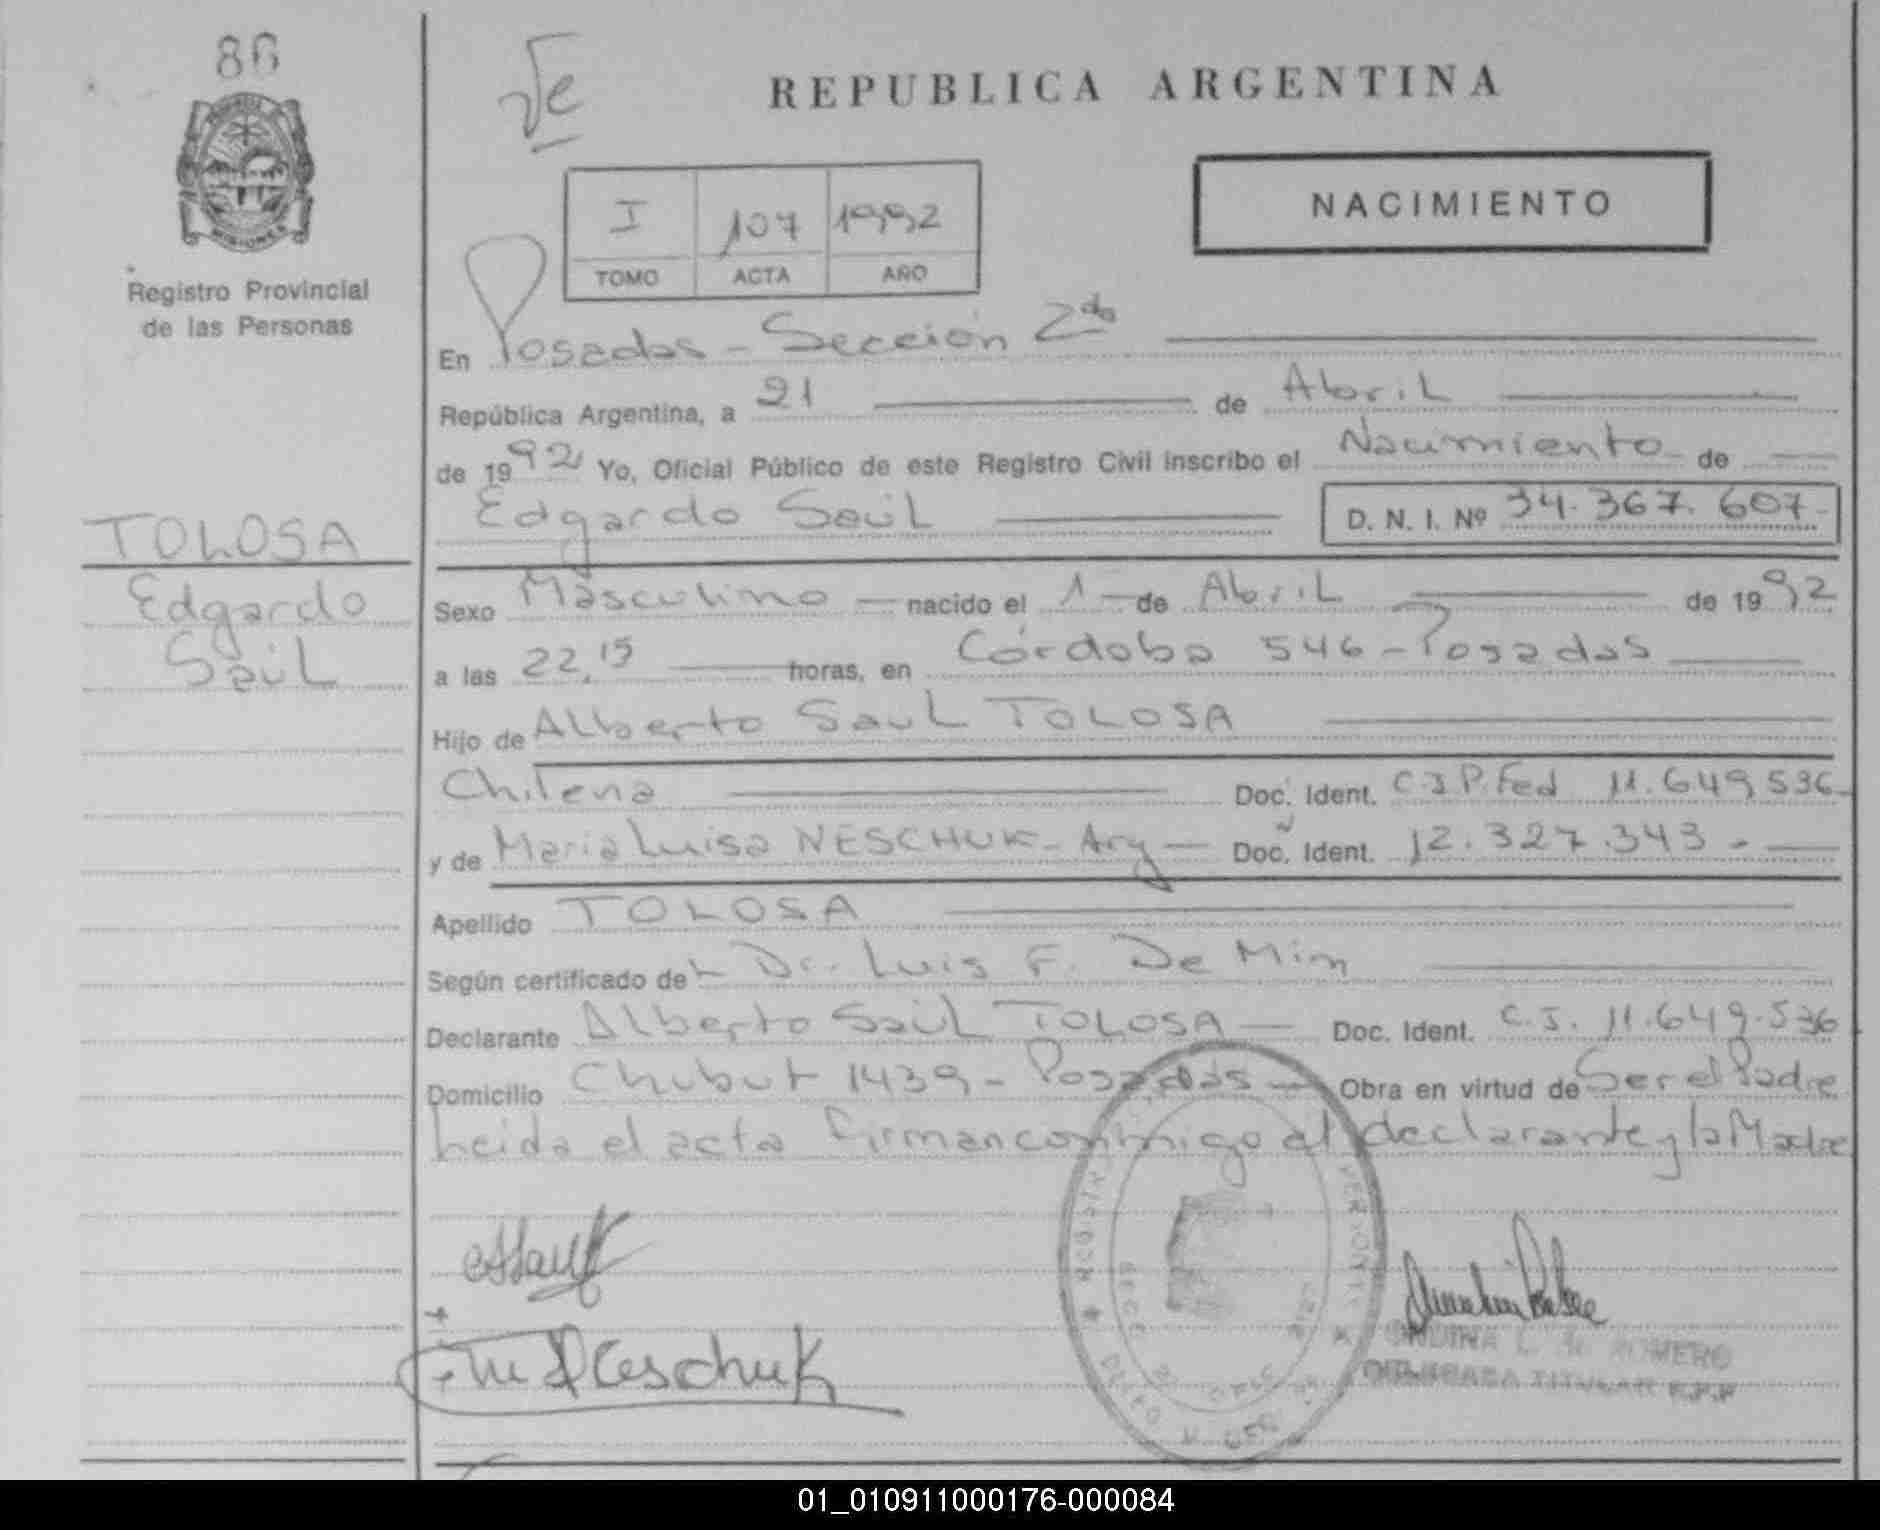 86
MISIONES
Registro Provincial
de las Personas
TOLOSA
Edgardo
Saúl
REPUBLICA ARGENTINA
NACIMIENTO
I 107 1992
TOMO ACTA AÑO
En Posadas - Sección 2da
República Argentina, a 21 de Abril
de 1992 Yo, Oficial Público de este Registro Civil inscribo el Nacimiento de
Edgardo Saúl D. N. I. Nº 34.367.607.-
Sexo Masculino nacido el 1 de Abril de 1992
a las 22,15 horas, en Córdoba 546 - Posadas
Hijo de Alberto Saul TOLOSA
Chilena Doc. Ident. C.I P. Fed 11.649.536
y de Maria Luisa NESCHUK - Arg Doc. Ident. 12.327.343 -
Apellido TOLOSA
Según certificado de L Dr. Luis F. De Mim
Declarante Alberto Saúl TOLOSA Doc. Ident. C.I. 11.649.536
Domicilio Chubut 1439 - Posadas Obra en virtud de Ser el Padre
Leida el acta firman conmigo el declarante y la Madre
ROMERO
TITULAR
01_010911000176-000084